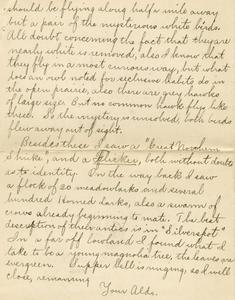 should be flying along half a mile away
but a pair of the mysterious white birds.
All doubt concerning the fact that they are
nearly white is removed, also I know that
they fly in a most curious way, but what
does an owl noted for seclusive habits do in
the open prairie, also there are grey hawks
of large size. But no common hawk flys like
these. So the mystery is unsolved, both birds
flew away out of sight.
Besides these I saw a "Great Northern
Shrike", and a Flicker, both without doubt
as to identity. On the way back I saw
a flock of 20 meadowlarks and several
hundred Horned Larks, also a swarm of
crows already beginning to mate. The best
description of their antics is in "Silverspot"
In a far off lowland I found what I
take to be a young magnolia tree, the leaves are
evergreen. Supper bell is ringing, so I will
close, remaining
Your Aldo.